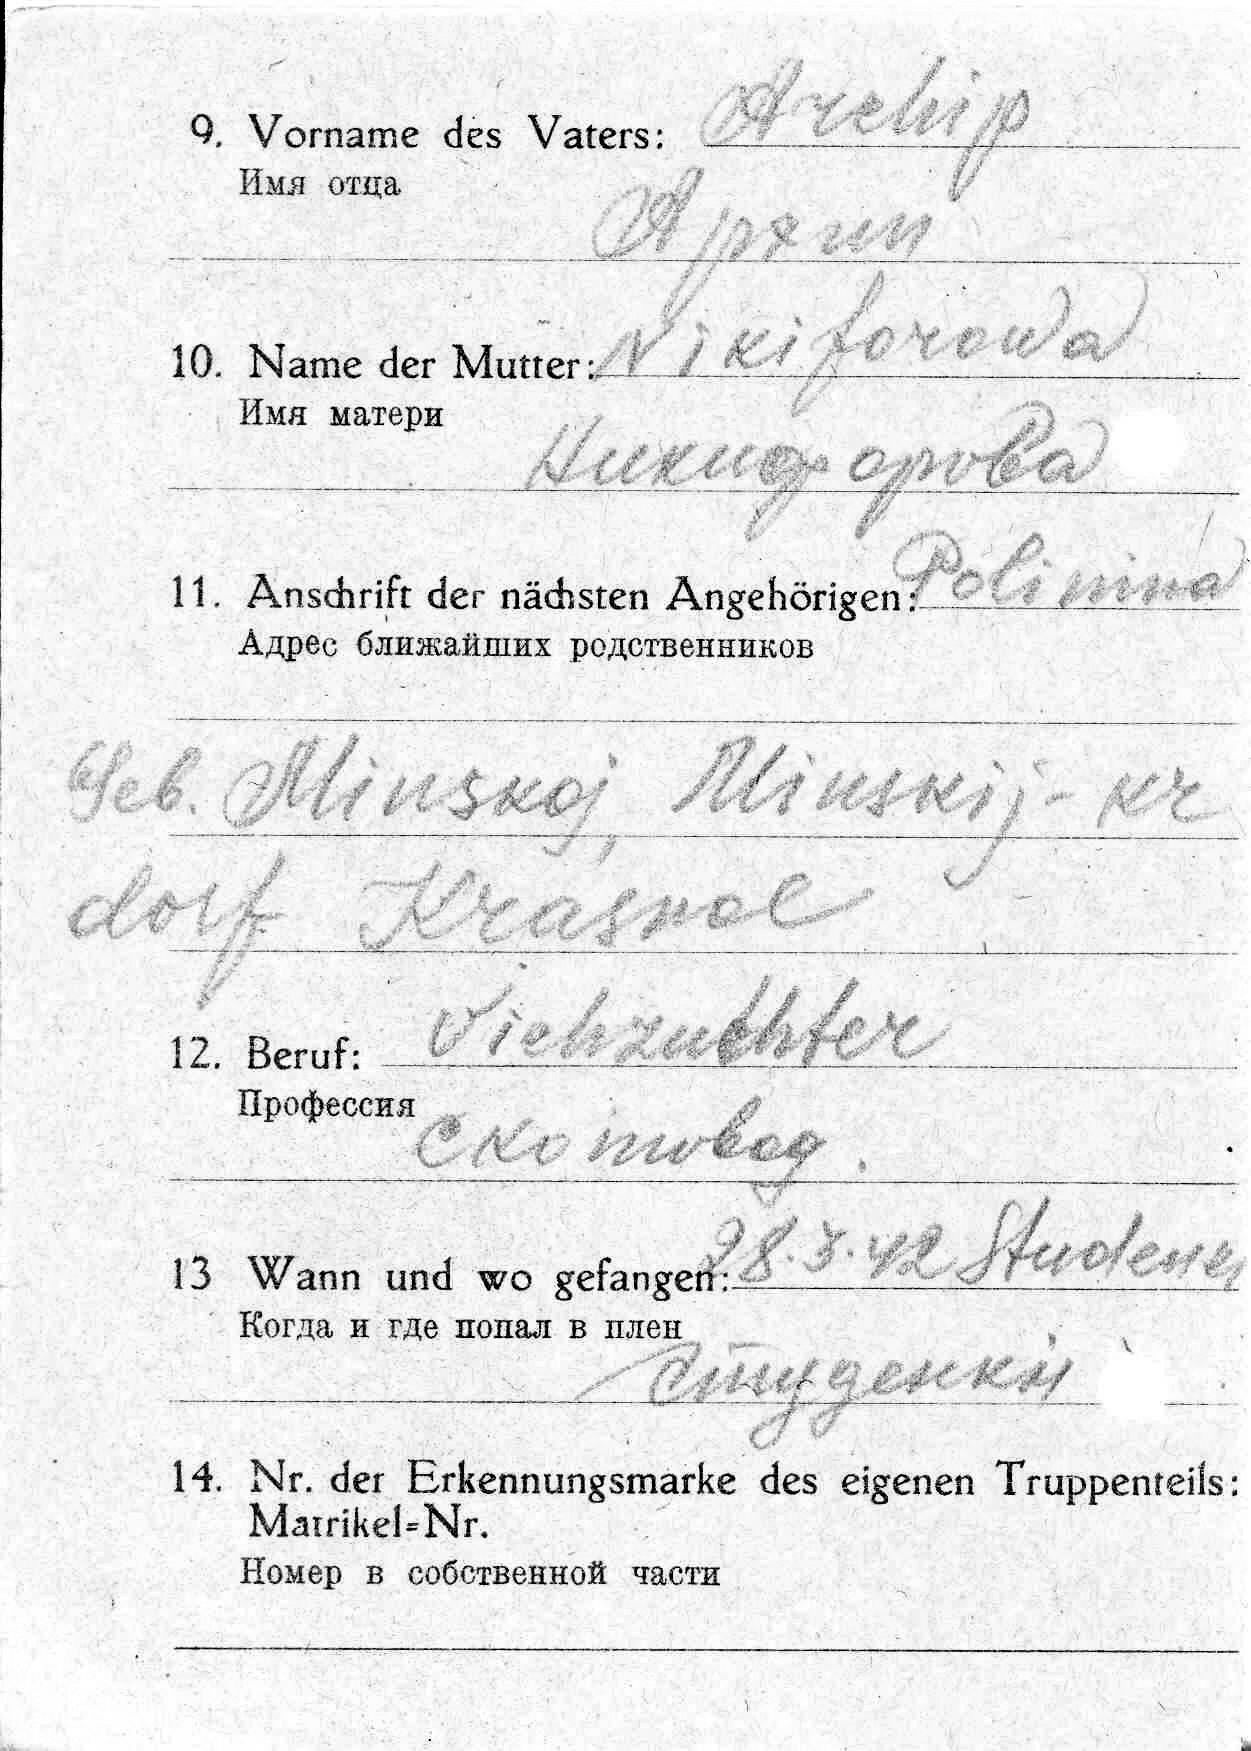 9. Vorname des Vaters: Archip
Имя отца
Архип
10. Name der Mutter: Nikiforowa
Имя матери
Никифорова
11. Anschrift der nächsten Angehörigen: Polinina
Адрес ближайших родственников
Geb. Minskoj, Minskij-kr
dorf Krasnoe
12. Beruf: Viehzuchter
Профессия
Скотовод.
13 Wann und wo gefangen: 28.3.42
Когда и где попал в плен
Студенки
14. Nr. der Erkennungsmarke des eigenen Truppenteils:
Matrikel=Nr.
Номер в собственной части